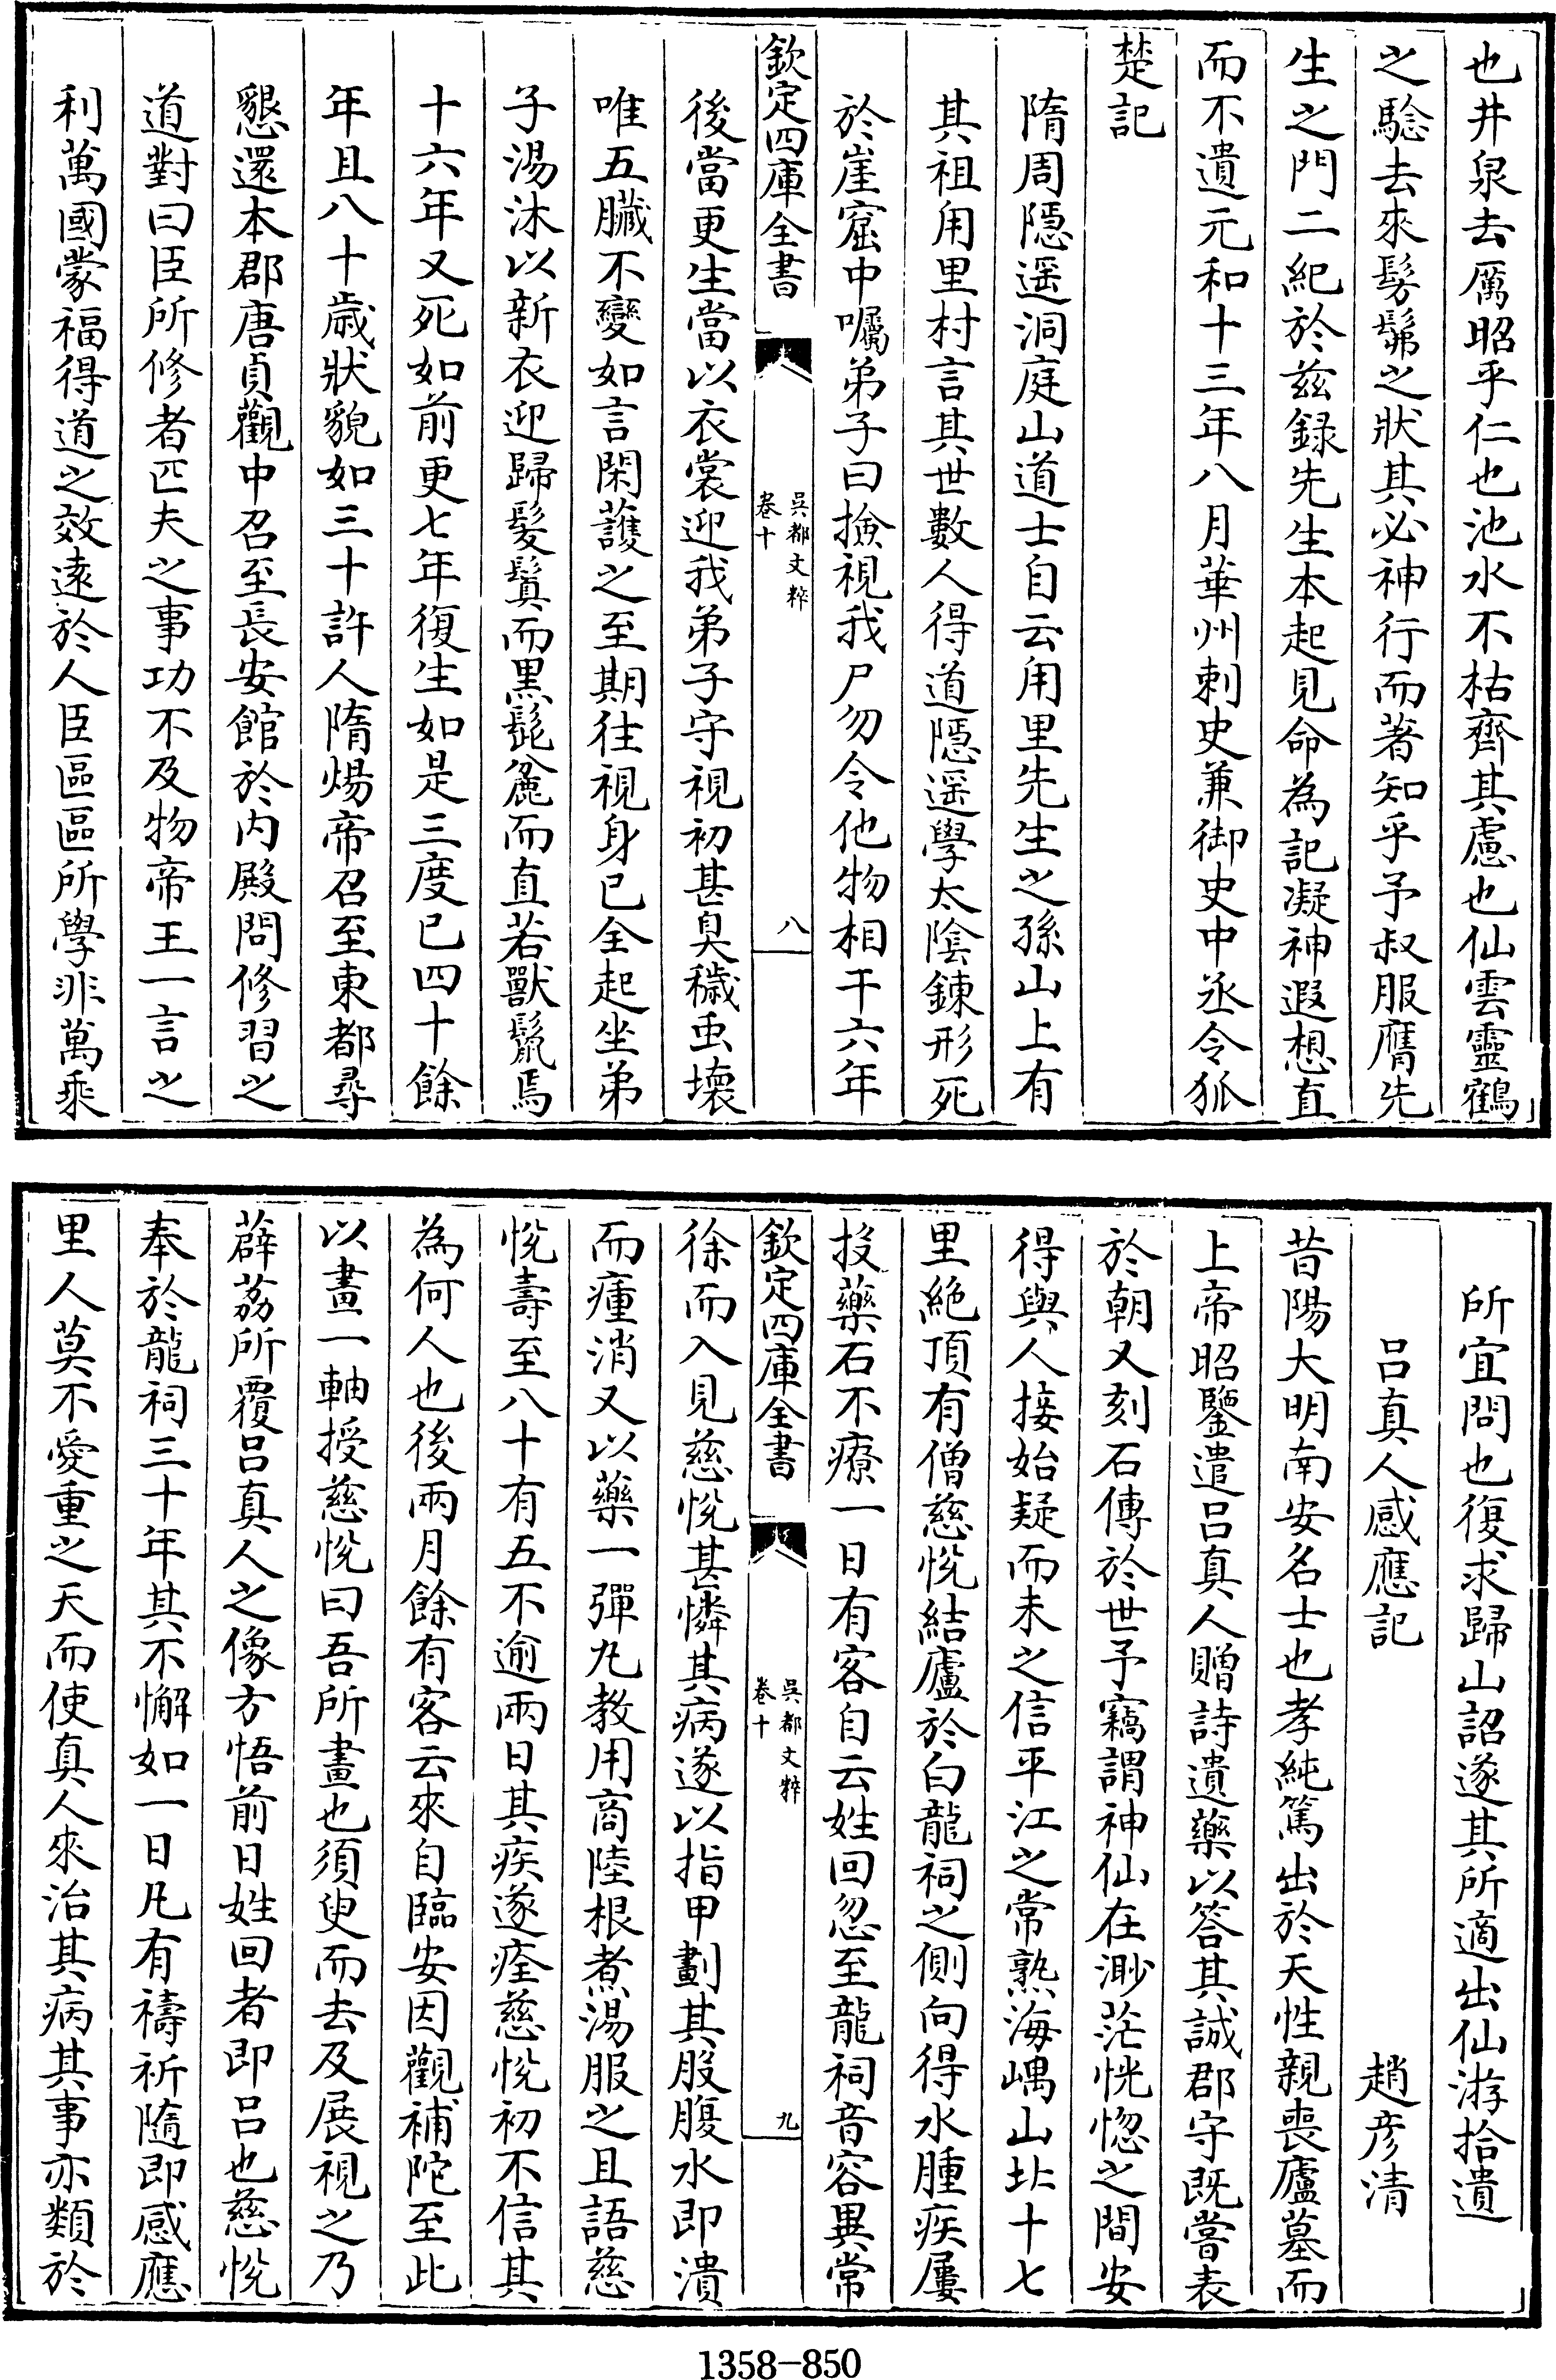 也井泉去厲昭乎仁也池水不枯齊其慮也仙雲靈鶴
之騐去來髣髴之狀其必神行而著知乎予叔服膺先
生之門二紀於兹録先生本起見命為記凝神遐想直
而不遺元和十三年八月華州刺史兼御史中丞令狐
楚記
隋周隱遥洞庭山道士自云甪里先生之孫山上有
其祖甪里村言其世數人得道隱遥學太陰錬形死
於崖窟中囑弟子曰撿視我尸勿令他物相干六年
欽定四庫全書
吳都文粹
卷十
八
後當更生當以衣裳迎我弟子守視初甚臭穢虫壞
唯五臟不變如言閑護之至期往視身已全起坐弟
子湯沐以新衣迎歸髮鬒而黒髭麄而直若獸鬛焉
十六年又死如前更七年復生如是三度已四十餘
年且八十歲狀貌如三十許人隋煬帝召至東都尋
懇還本郡唐貞觀中召至長安館於内殿問修習之
道對曰臣所修者匹夫之事功不及物帝王一言之
利萬國蒙福得道之效逺於人臣區區所學非萬乘
所宜問也復求歸山詔遂其所適出仙㳺拾遺
吕真人感應記
趙彦清
昔陽大明南安名士也孝純篤出於天性親喪廬墓而
上帝昭鑒遣吕真人贈詩遺藥以答其誠郡守既嘗表
於朝又刻石傳於世予竊謂神仙在渺茫恍惚之間安
得與人接始疑而未之信平江之常熟海嵎山北十七
里絶頂有僧慈恱結廬於白龍祠之側向得水腫疾屢
投藥石不療一日有客自云姓回忽至龍祠音容異常
欽定四庫全書
吳都文粹
卷十
九
徐而入見慈恱甚憐其病遂以指甲劃其股腹水即潰
而瘇消又以藥一彈丸教用商陸根煮湯服之且語慈
恱壽至八十有五不逾兩日其疾遂痊慈恱初不信其
為何人也後兩月餘有客云來自臨安因觀補陀至此
以畫一軸授慈恱曰吾所畫也須臾而去及展視之乃
薜荔所覆吕真人之像方悟前日姓回者即吕也慈恱
奉於龍祠三十年其不懈如一日凡有禱祈隨即感應
里人莫不愛重之天而使真人來治其病其事亦類於
1358-850